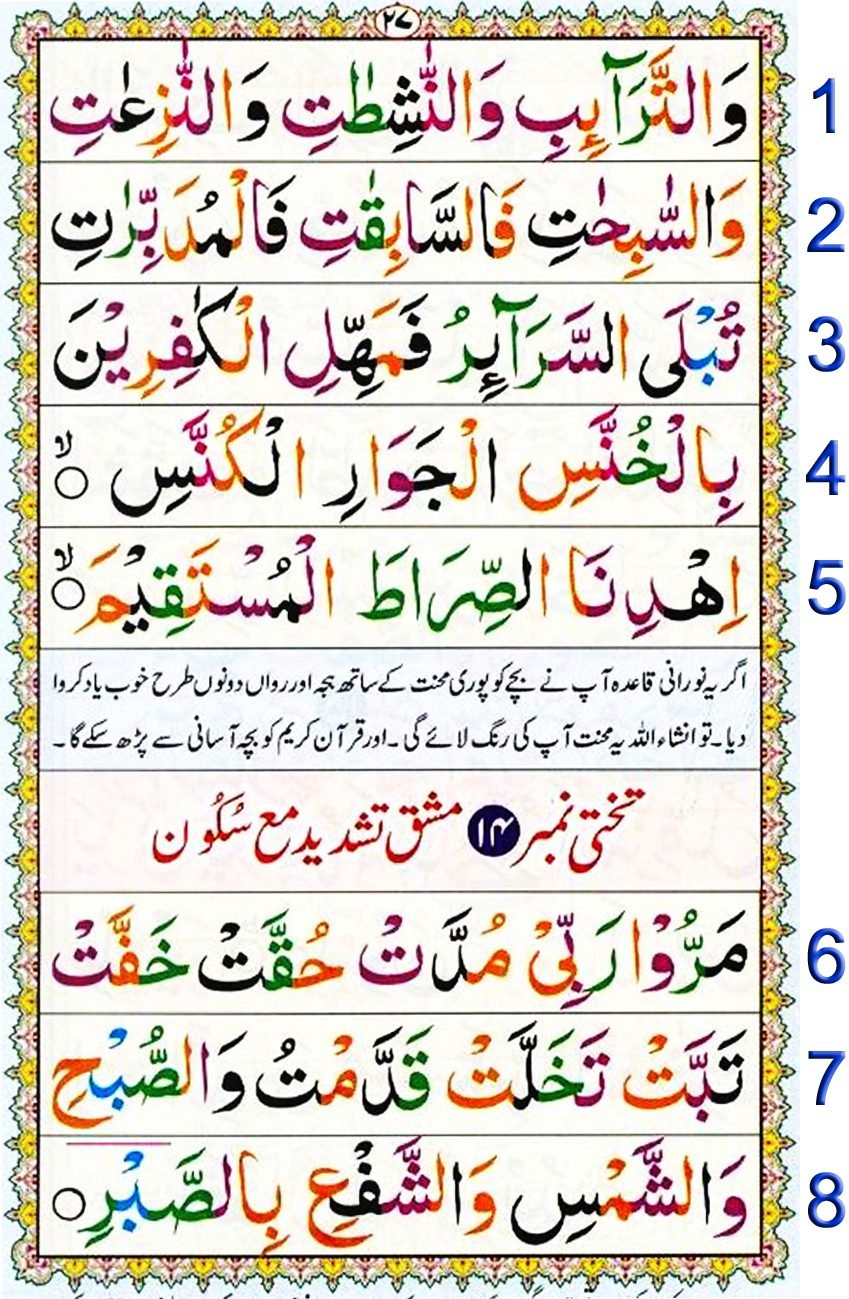 ۲۷
وَالتَّرَآئِبِ وَالنّٰشِطٰتِ وَالنّٰزِعٰتِ 1
وَالسّٰبِحٰتِ فَالسَّابِقٰتِ فَالْمُدَبِّرٰتِ 2
تُبْلَى السَّرَآئِرُ فَمَهِّلِ الْكٰفِرِيْنَ 3
بِالْخُنَّسِ الْجَوَارِ الْكُنَّسِ ۙ 4
اِهْدِنَا الصِّرَاطَ الْمُسْتَقِيْمَ ۙ 5
اگر یہ نورانی قاعدہ آپ نے بچے کو پوری محنت کے ساتھ ہجہ اور رواں دونوں طرح خوب یاد کروا
دیا۔ تو انشاء اللہ یہ محنت آپ کی رنگ لائے گی۔ اور قرآن کریم کو بچہ آسانی سے پڑھ سکے گا۔
تختی نمبر ۱۴ مشق تشدید مع سُکُون
مَرُّوْا رَبِّىْ مُدَّتْ حُقَّتْ خَفَّتْ 6
تَبَّتْ تَخَلَّتْ قَدَّمْتُ وَالصُّبْحِ 7
وَالشَّمْسِ وَالشَّفْعِ بِالصَّبْرِ 8